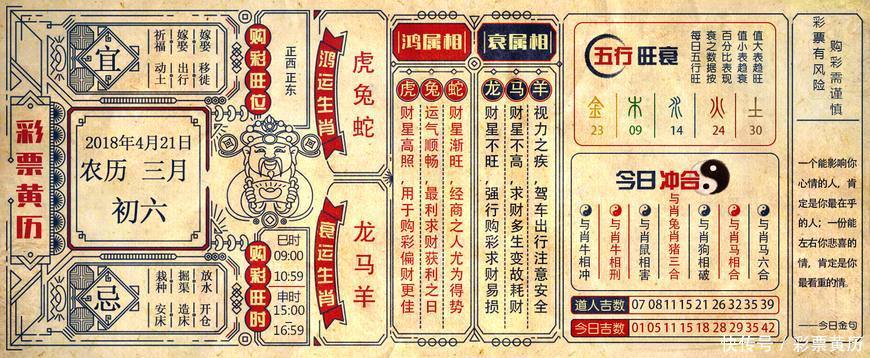 彩票黄历
宜
祈福 动土
嫁娶 出行
嫁娶 移徙
2018年4月21日
农历 三月
初六
忌
栽种 安床
掘渠 造床
放水 开仓
购彩旺位
正西 正东
购彩旺时
巳时
09:00
10:59
申时
15:00
16:59
鸿运生肖
虎兔蛇
衰运生肖
龙马羊
鸿属相
虎 财星高照,用于购彩偏财更佳
兔 运气顺畅,最利求财获利之日
蛇 财星渐旺,经商之人尤为得势
衰属相
龙 财星不旺,强行购彩求财易损
马 财星不高,求财多生变故耗财
羊 视力之疾,驾车出行注意安全
五行旺衰
每日五行旺
衰之数据按
百分比表现
值小表趋衰
值大表趋旺
金 木 水 火 土
23 09 14 24 30
今日冲合
与肖牛相冲
与肖牛相刑
与肖鼠相害
与肖兔肖猪三合
与肖狗相破
与肖马相合
与肖马六合
道人吉数 07 08 11 15 21 26 32 35 39
今日吉数 01 05 11 15 18 28 29 35 42
彩票有风险
购彩需谨慎
一个能影响你
心情的人，肯
定是你最在乎
的人；一份能
左右你悲喜的
情，肯定是你
最看重的情。
——今日金句
快传号 / 彩票黄历